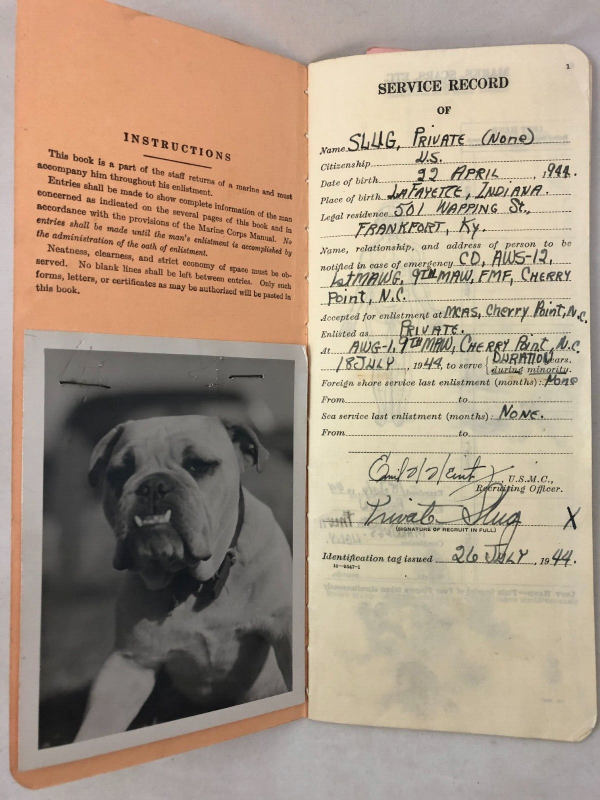 INSTRUCTIONS
This book is a part of the staff returns of a marine and must
accompany him throughout his enlistment.
Entries shall be made to show complete information of the man
concerned as indicated on the several pages of this book and in
accordance with the provisions of the Marine Corps Manual. No
entries shall be made until the man's enlistment is accomplished by
the administration of the oath of enlistment.
Neatness, clearness, and strict economy of space must be ob-
served. No blank lines shall be left between entries. Only such
forms, letters, or certificates as may be authorized will be pasted in
this book.
1
SERVICE RECORD
OF
Name SLUG, PRIVATE (None)
Citizenship U.S.
Date of birth 22 APRIL, 1944.
Place of birth LAFAYETTE, INDIANA.
Legal residence 501 WAPPING St.,
FRANKFORT, Ky.
Name, relationship, and address of person to be
notified in case of emergency CD, AWS-12,
1stMAWG, 9THMAW, FMF, CHERRY
Point, N.C.
Accepted for enlistment at MCAS, Cherry Point, N.C.
Enlisted as PRIVATE.
At AWG-1, 9THMAW, CHERRY Point, N.C.
18 JULY, 1944, to serve { DURATION years.
during minority.
Foreign shore service last enlistment (months): NONE
From to
Sea service last enlistment (months): NONE.
From to
U.S.M.C.,
Recruiting Officer.
Private Slug X
(SIGNATURE OF RECRUIT IN FULL)
Identification tag issued 26 JULY, 1944.